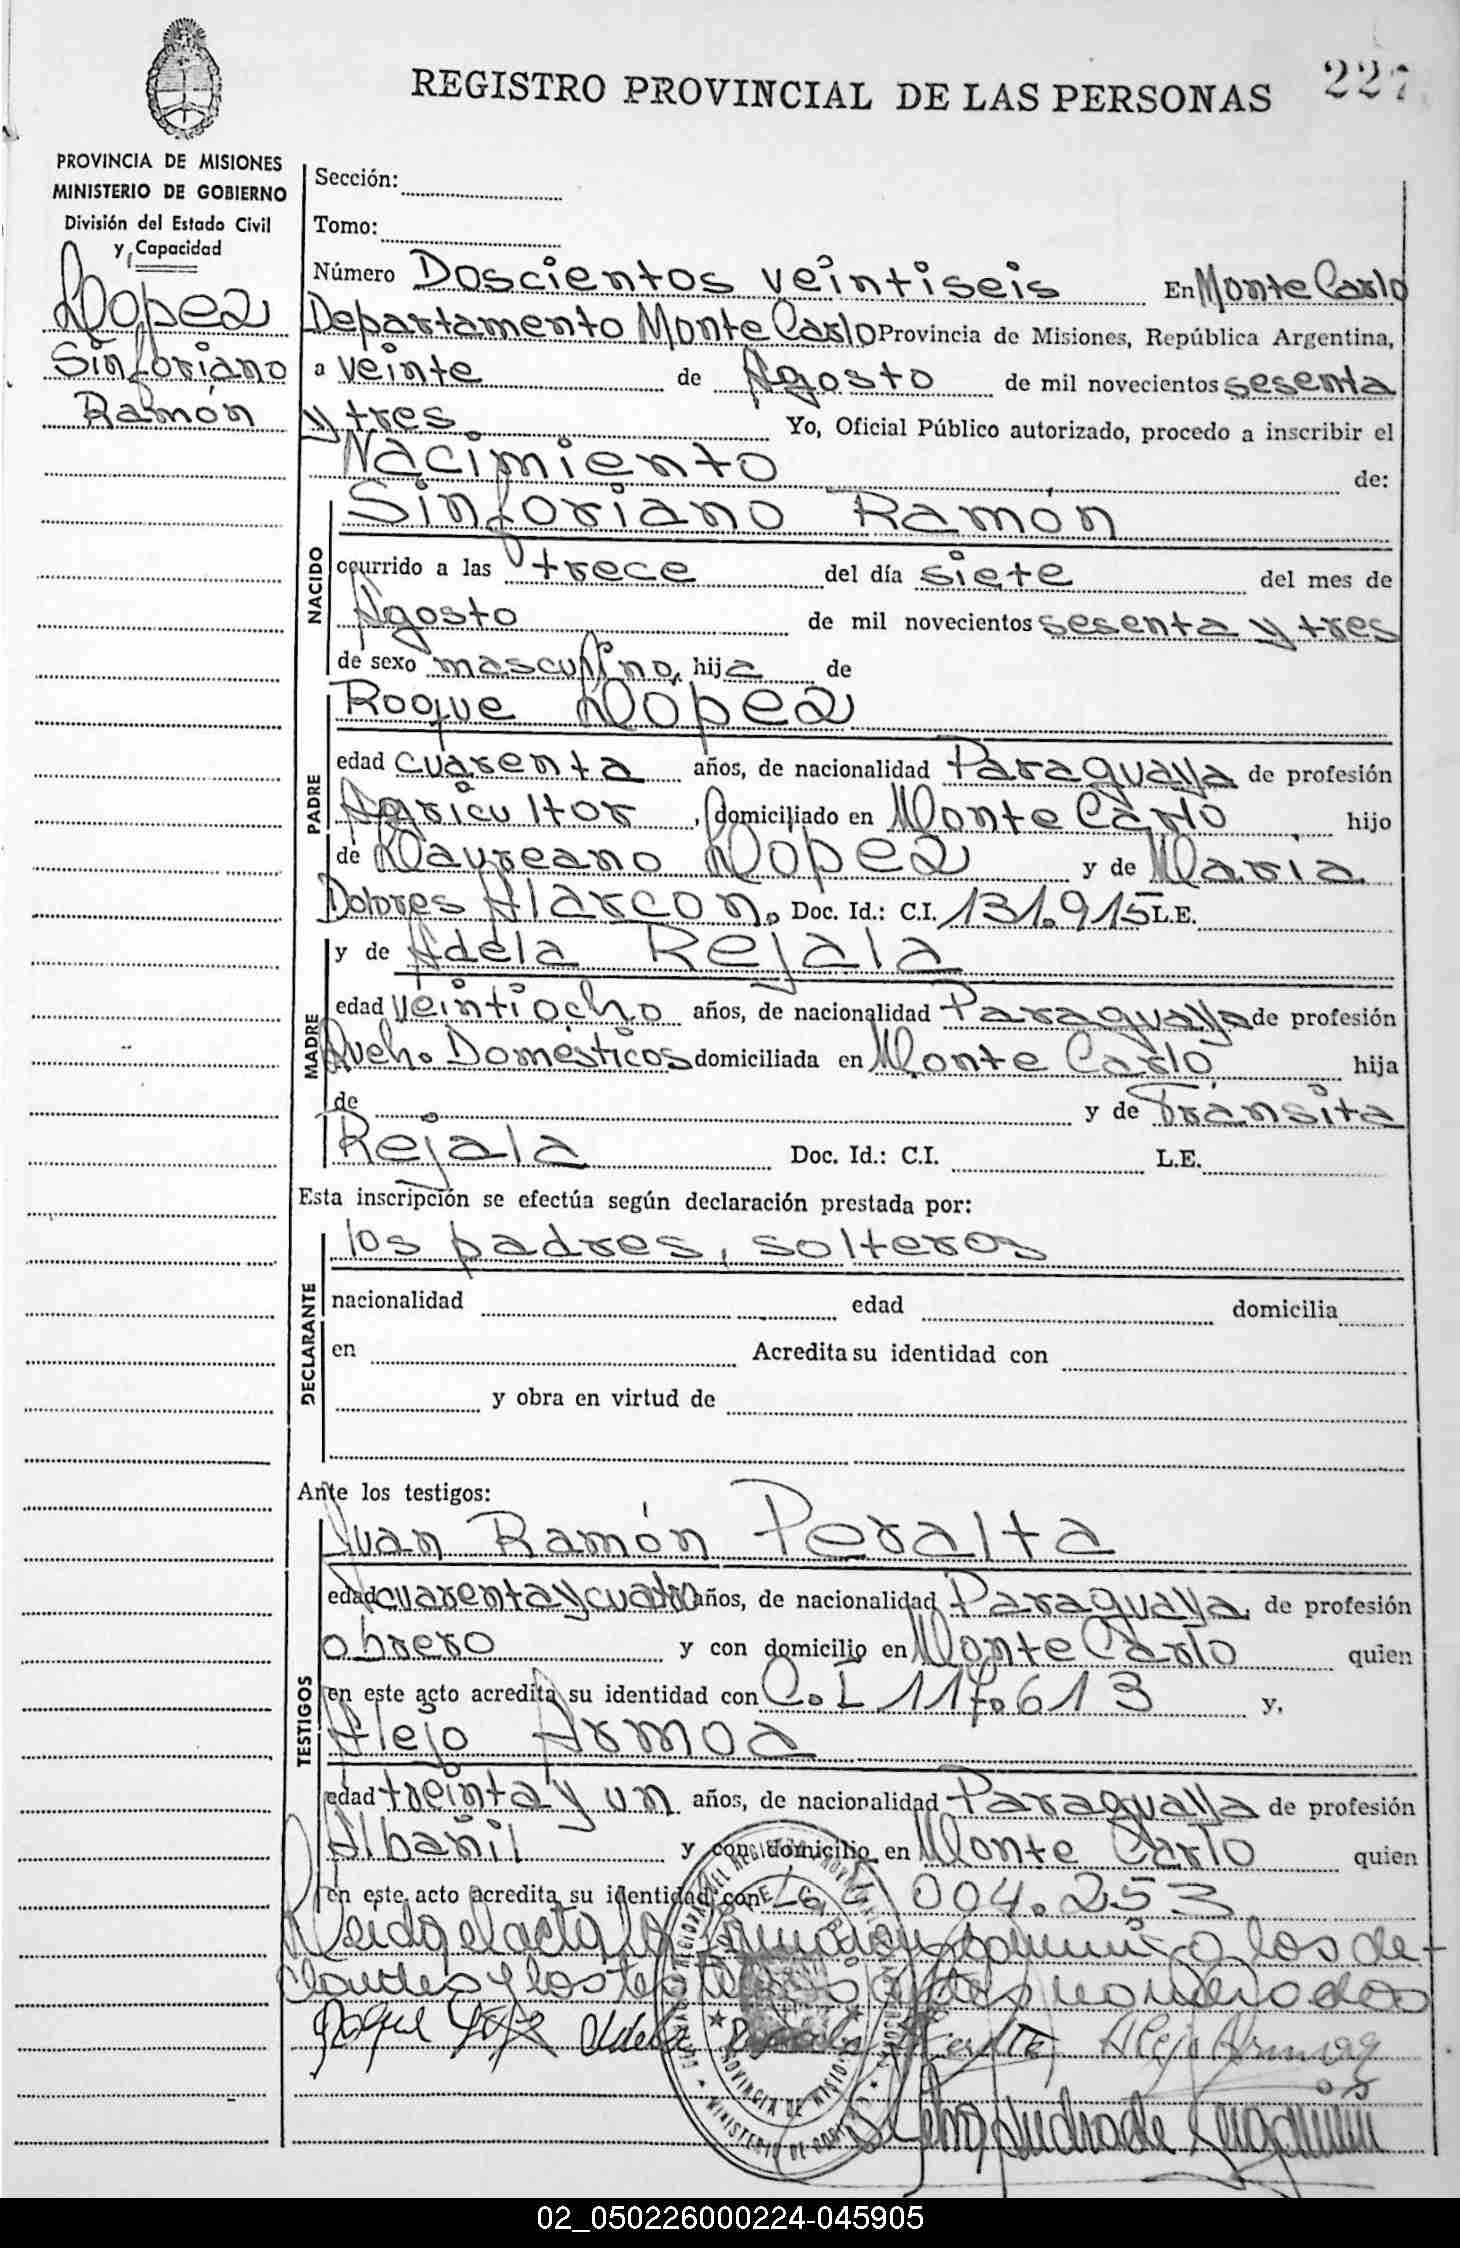 227
REGISTRO PROVINCIAL DE LAS PERSONAS
PROVINCIA DE MISIONES
MINISTERIO DE GOBIERNO
División del Estado Civil
y Capacidad
Lopez
Sinforiano
Ramón
Sección:
Tomo:
Número Doscientos veintiseis En Monte Carlo
Departamento Monte Carlo Provincia de Misiones, República Argentina,
a veinte de Agosto de mil novecientos sesenta
y tres Yo, Oficial Público autorizado, procedo a inscribir el
Nacimiento de:
NACIDO
Sinforiano Ramón
ocurrido a las trece del día siete del mes de
Agosto de mil novecientos sesenta y tres
de sexo masculino, hija de
PADRE
Roque Lopez
edad cuarenta años, de nacionalidad Paraguaya de profesión
Agricultor, domiciliado en Monte Carlo hijo
de Laureano Lopez y de Maria
Dolores Alarcon. Doc. Id.: C.I. 131.915 L.E.
MADRE
y de Adela Rejala
edad veintiocho años, de nacionalidad Paraguaya de profesión
Queh. Domésticos domiciliada en Monte Carlo hija
de y de Transita
Rejala Doc. Id.: C.I. L.E.
Esta inscripción se efectúa según declaración prestada por:
DECLARANTE
los padres, solteros
nacionalidad edad domicilia
en Acredita su identidad con
y obra en virtud de
Ante los testigos:
TESTIGOS
Juan Ramón Peralta
edad cuarenta y cuatro años, de nacionalidad Paraguaya, de profesión
obrero y con domicilio en Monte Carlo quien
en este acto acredita su identidad con C.I 117.613 y,
Alejo Armoa
edad treinta y un años, de nacionalidad Paraguaya de profesión
Albañil y con domicilio en Monte Carlo quien
en este acto acredita su identidad con 004.253
Leida el acta la firmaron conmigo los de-
clarantes y los testigos
Roque Lopez Adela Alejo Armoa
PROVINCIA DE MISIONES
MINISTERIO DE GOBIERNO
02_050226000224-045905